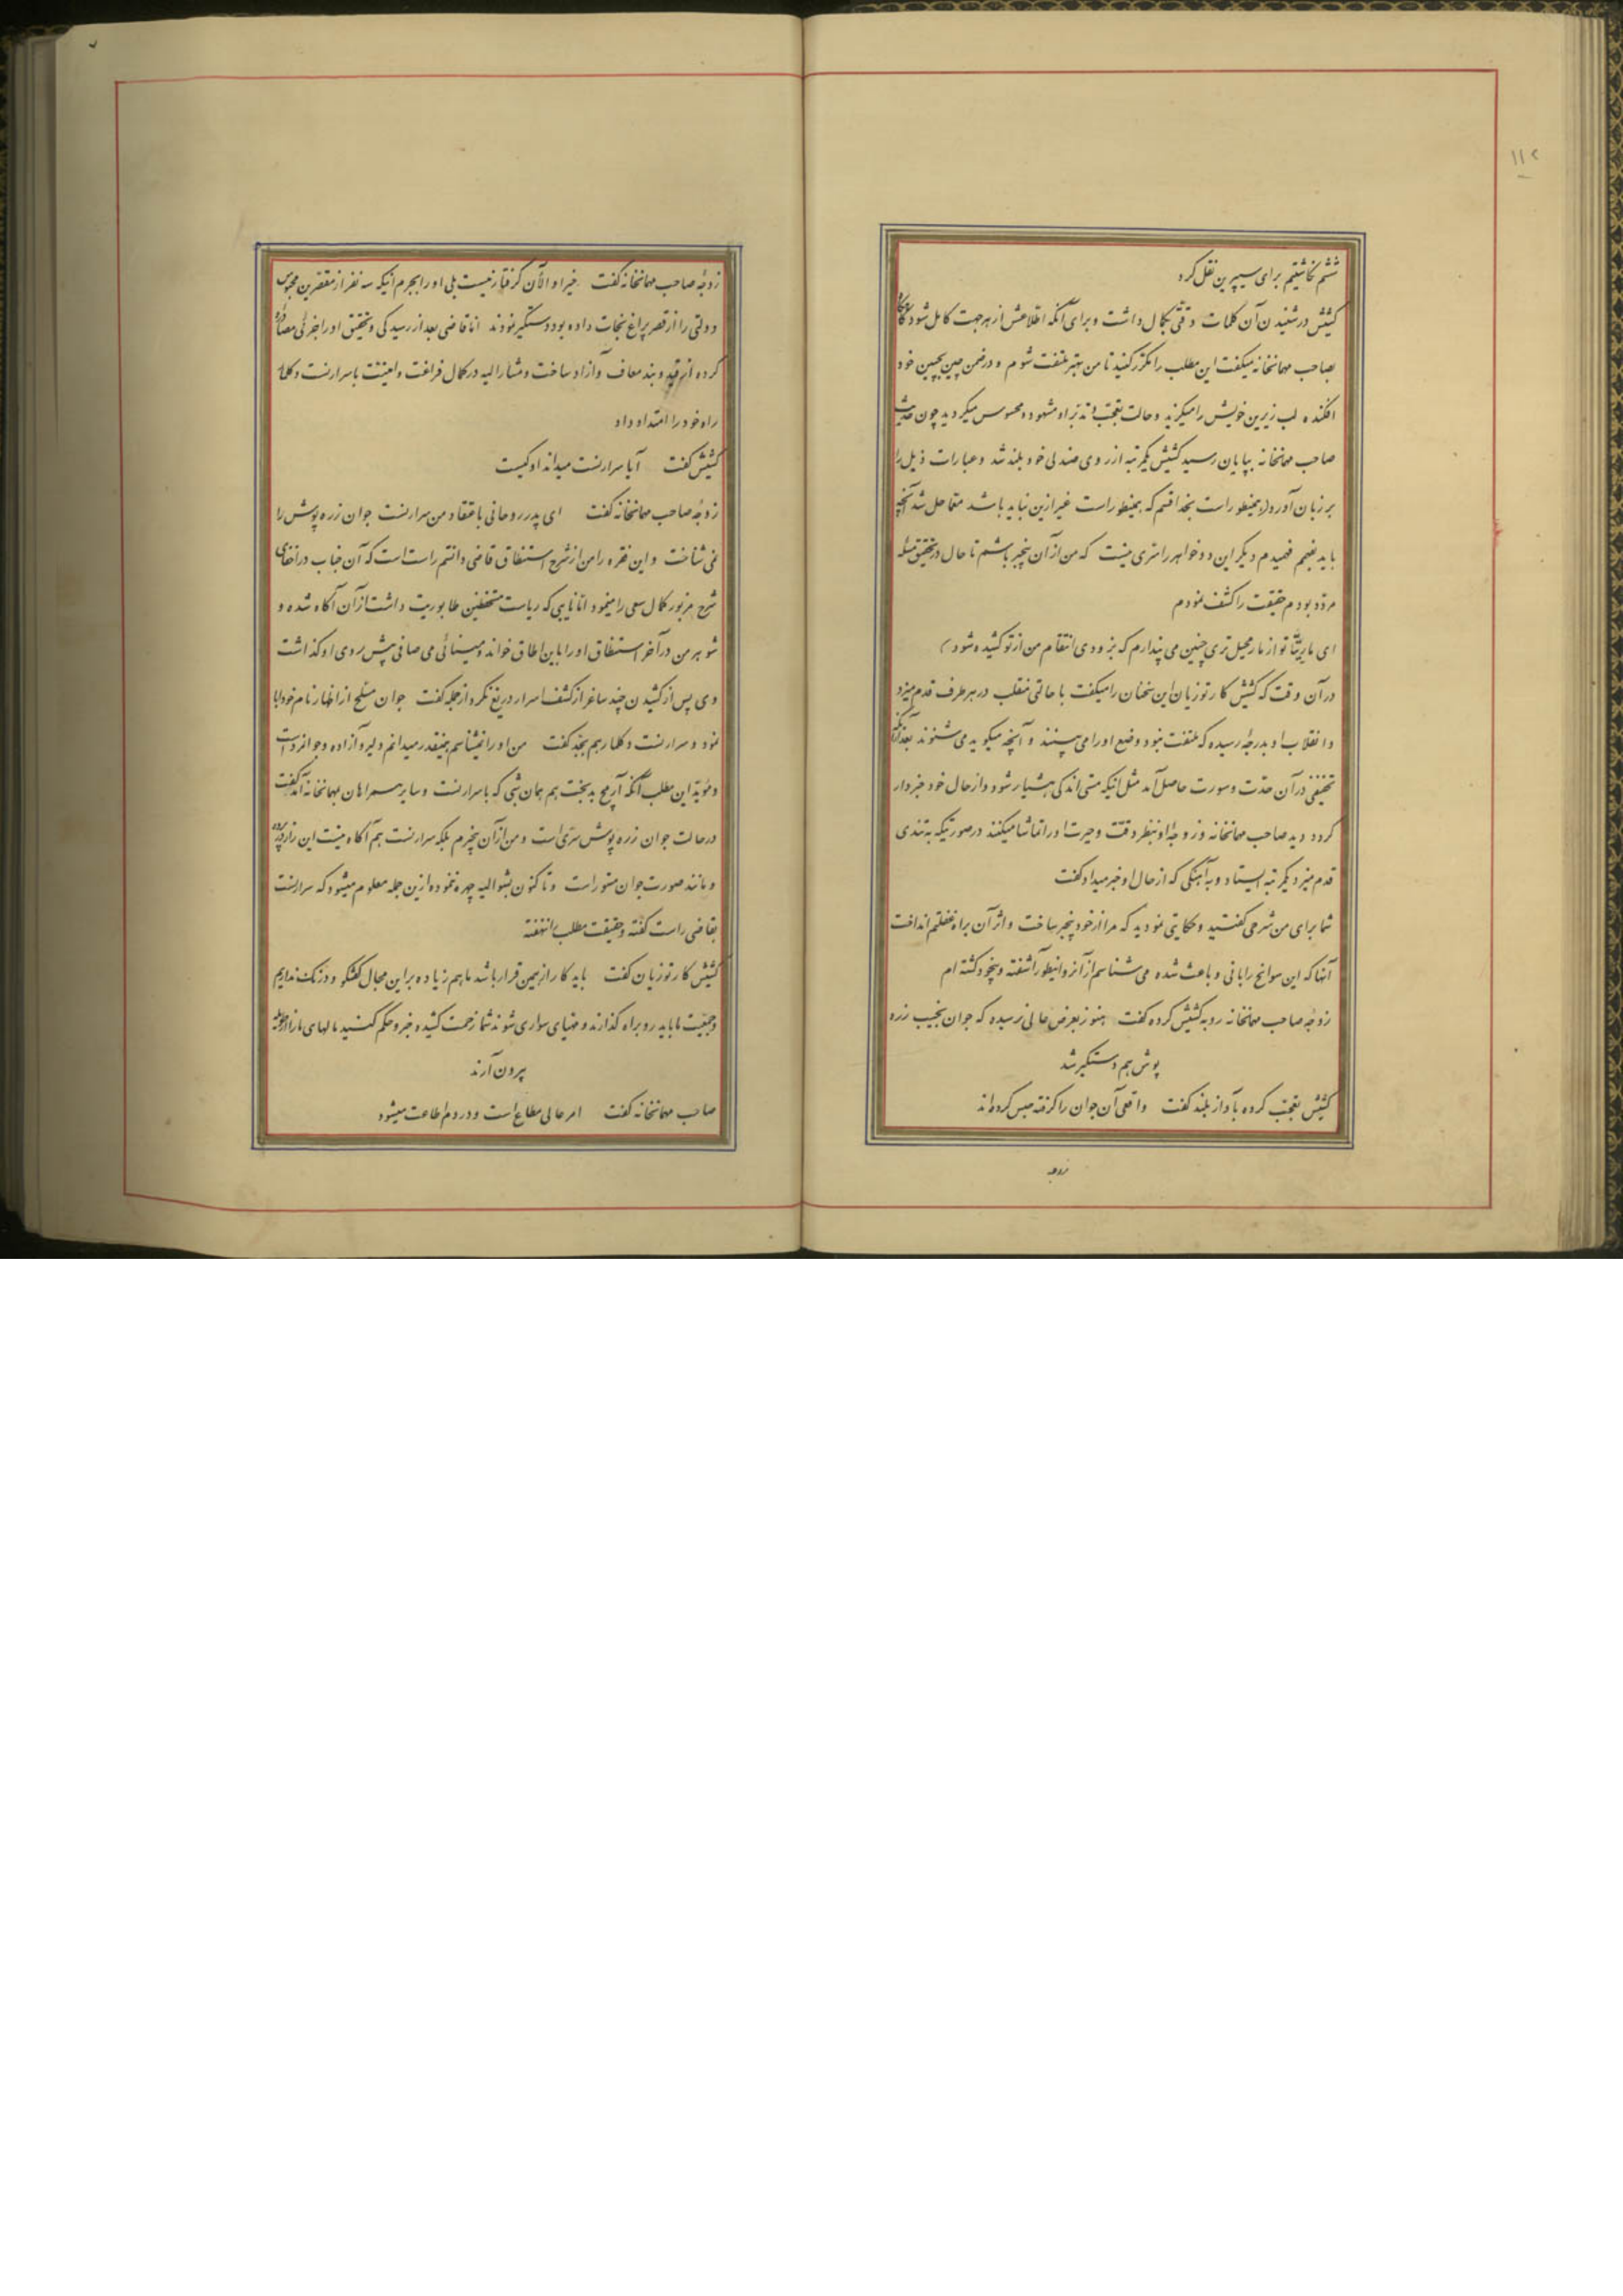 ۱۱۲
ششم نگاشتیم برای سیپرین نقل کرد
کشیش در شنیدن آن کلمات دقتی بکمال داشت و برای آنکه اطلاعش از هر جهت کامل شود گاهگاه
بصاحب مهمانخانه میگفت این مطلب را مکرر کنید تا من بهتر ملتفت شوم و در ضمن چین بجبین خود
افکنده لب زیرین خویش را میگزید و حالت تعجب و تدبر او مشهود و محسوس میگردید چون حدیث
صاحب مهمانخانه بپایان رسید کشیش یکمرتبه از روی صندلی خود بلند شد و عبارات ذیل را
بر زبان آورد (همینطور است بخدا قسم که همینطور است غیر ازین نباید باشد معما حل شد آنچه
باید بفهمم فهمیدم دیگر این دو خواهر را سری نیست که من از آن بیخبر باشم تا حال در تحقیق مسئله
مردد بودم حقیقت را کشف نمودم
ای ماریتا تو از مار محیل تری چنین می پندارم که بزودی انتقام من از تو کشیده شود)
در آن وقت که کشیش کارتوزیان این سخنان را میگفت با حالتی منقلب در هر طرف قدم میزد
و انقلاب او بدرجهٔ رسیده که ملتفت نبود وضع او را می بینند و آنچه میگوید می شنوند بعد از آنکه
تخفیفی در آن حدت و سورت حاصل آمد مثل اینکه مستی اندکی هشیار شود و از حال خود خبردار
گردد دید صاحب مهمانخانه و زوجهٔ او بنظر دقت و حیرت او را تماشا میکنند در صورتیکه بتندی
قدم میزد یکمرتبه ایستاد و به آهنگی که از حال او خبر میداد گفت
شما برای من شرحی گفتید و حکایتی نمودید که مرا از خود بیخبر ساخت و اثر آن براه غفلتم انداخت
آنها که این سوانح را بانی و باعث شده می شناسم از آنرو اینطور آشفته و بیخود گشته ام
زوجهٔ صاحب مهمانخانه رو به کشیش کرده گفت هنوز بعرض عالی نرسیده که جوان نجیب زره
پوش هم دستگیر شد
کشیش تعجب کرده بآواز بلند گفت واقعی آن جوان را گرفته حبس کرده اند
زوجه
زوجهٔ صاحب مهمانخانه گفت خیر او الآن گرفتار نیست بلی او را بجرم اینکه سه نفر از مقصرین محبوس
دولتی را از قصر پراغ نجات داده بود دستگیر نمودند اما قاضی بعد از رسیدگی و تحقیق او را جزئی مصادره
کرده از قید و بند معاف و آزاد ساخت و مشارالیه در کمال فراغت و امنیت با سرارنست و کلمار
راه خود را امتداد داد
کشیش گفت آیا سرارنست میداند او کیست
زوجهٔ صاحب مهمانخانه گفت ای پدر روحانی باعتقاد من سرارنست جوان زره پوش را
نمی شناخت و این فقره را من از شرح استنطاق قاضی دانستم راست است که آن جناب در اخفای
شرح مزبور کمال سعی را مینمود اما نایبی که ریاست مستحفظین طابوریت داشت از آن آگاه شده و
شوهر من در آخر استنطاق او را باین اطاق خواند و مینائی می صافی پیش روی او گذاشت
وی پس از کشیدن چند ساغر از کشف اسرار دریغ نکرد از جمله گفت جوان مسلح از اظهار نام خود ابا
نمود و سرارنست و کلمار هم بجد گفت من او را نمیشناسم همینقدر میدانم دلیر و آزاده و جوانمرد است
و مؤید این مطلب آنکه آریج بدبخت هم همان شبی که با سرارنست و سایر همراهان بمهمانخانه آمد گفت
در حالت جوان زره پوش سری است و من از آن بیخبرم بلکه سرارنست هم آگاه نیست این راز در پرده
و مانند صورت جوان مستور است و تا کنون بشوالیه چهره ننموده ازین جمله معلوم میشود که سرارنست
بقاضی راست گفته و حقیقت مطلب را نهفته
کشیش کارتوزیان گفت باید کار از همین قرار باشد ما هم زیاده بر این مجال گفتگو و درنگ نداریم
و جمعیت ما باید رو براه گذارند و مهیای سواری شوند شما زحمت کشیده خبر و حکم کنید مالهای ما را از طویله
بیرون آرند
صاحب مهمانخانه گفت امر عالی مطاع است و در دم اطاعت میشود